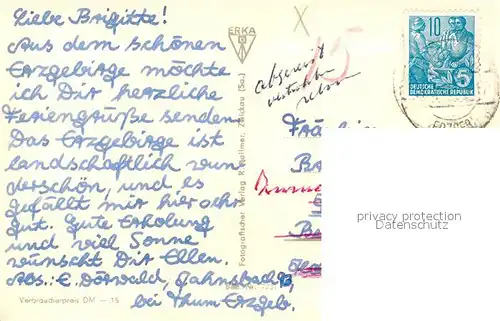 Liebe Brigitte!
Aus dem schönen
Erzgebirge möchte
ich Dir herzliche
Feriengrüße senden.
Das Erzgebirge ist
landschaftlich wun
derschön, und es
gefällt mir hier sehr
gut. Gute Erholung
und viel Sonne
wünscht Dir Ellen.
Abs.: E. Dörwald, Jahnsbach
bei Thum Erzgeb.
Verbraucherpreis DM —.15
ERKA
Fotografischer Verlag R. Zwickau (Sa.)
15
abgereist
10
5
DEUTSCHE
DEMOKRATISCHE REPUBLIK
privacy protection
Datenschutz